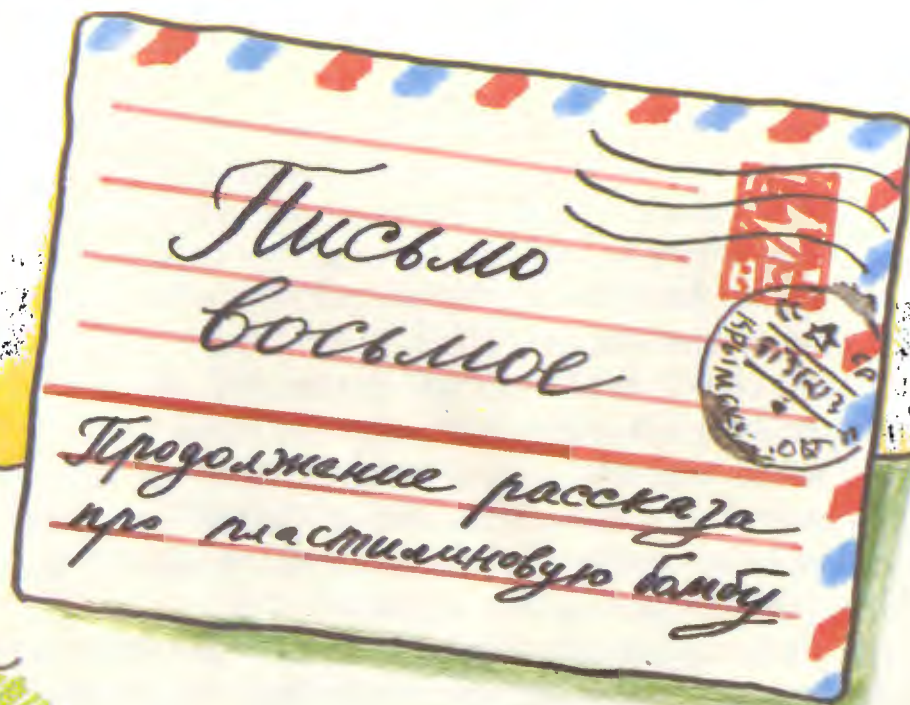 Письмо
восьмое
Продолжание рассказа
про пластилиновую бомбу